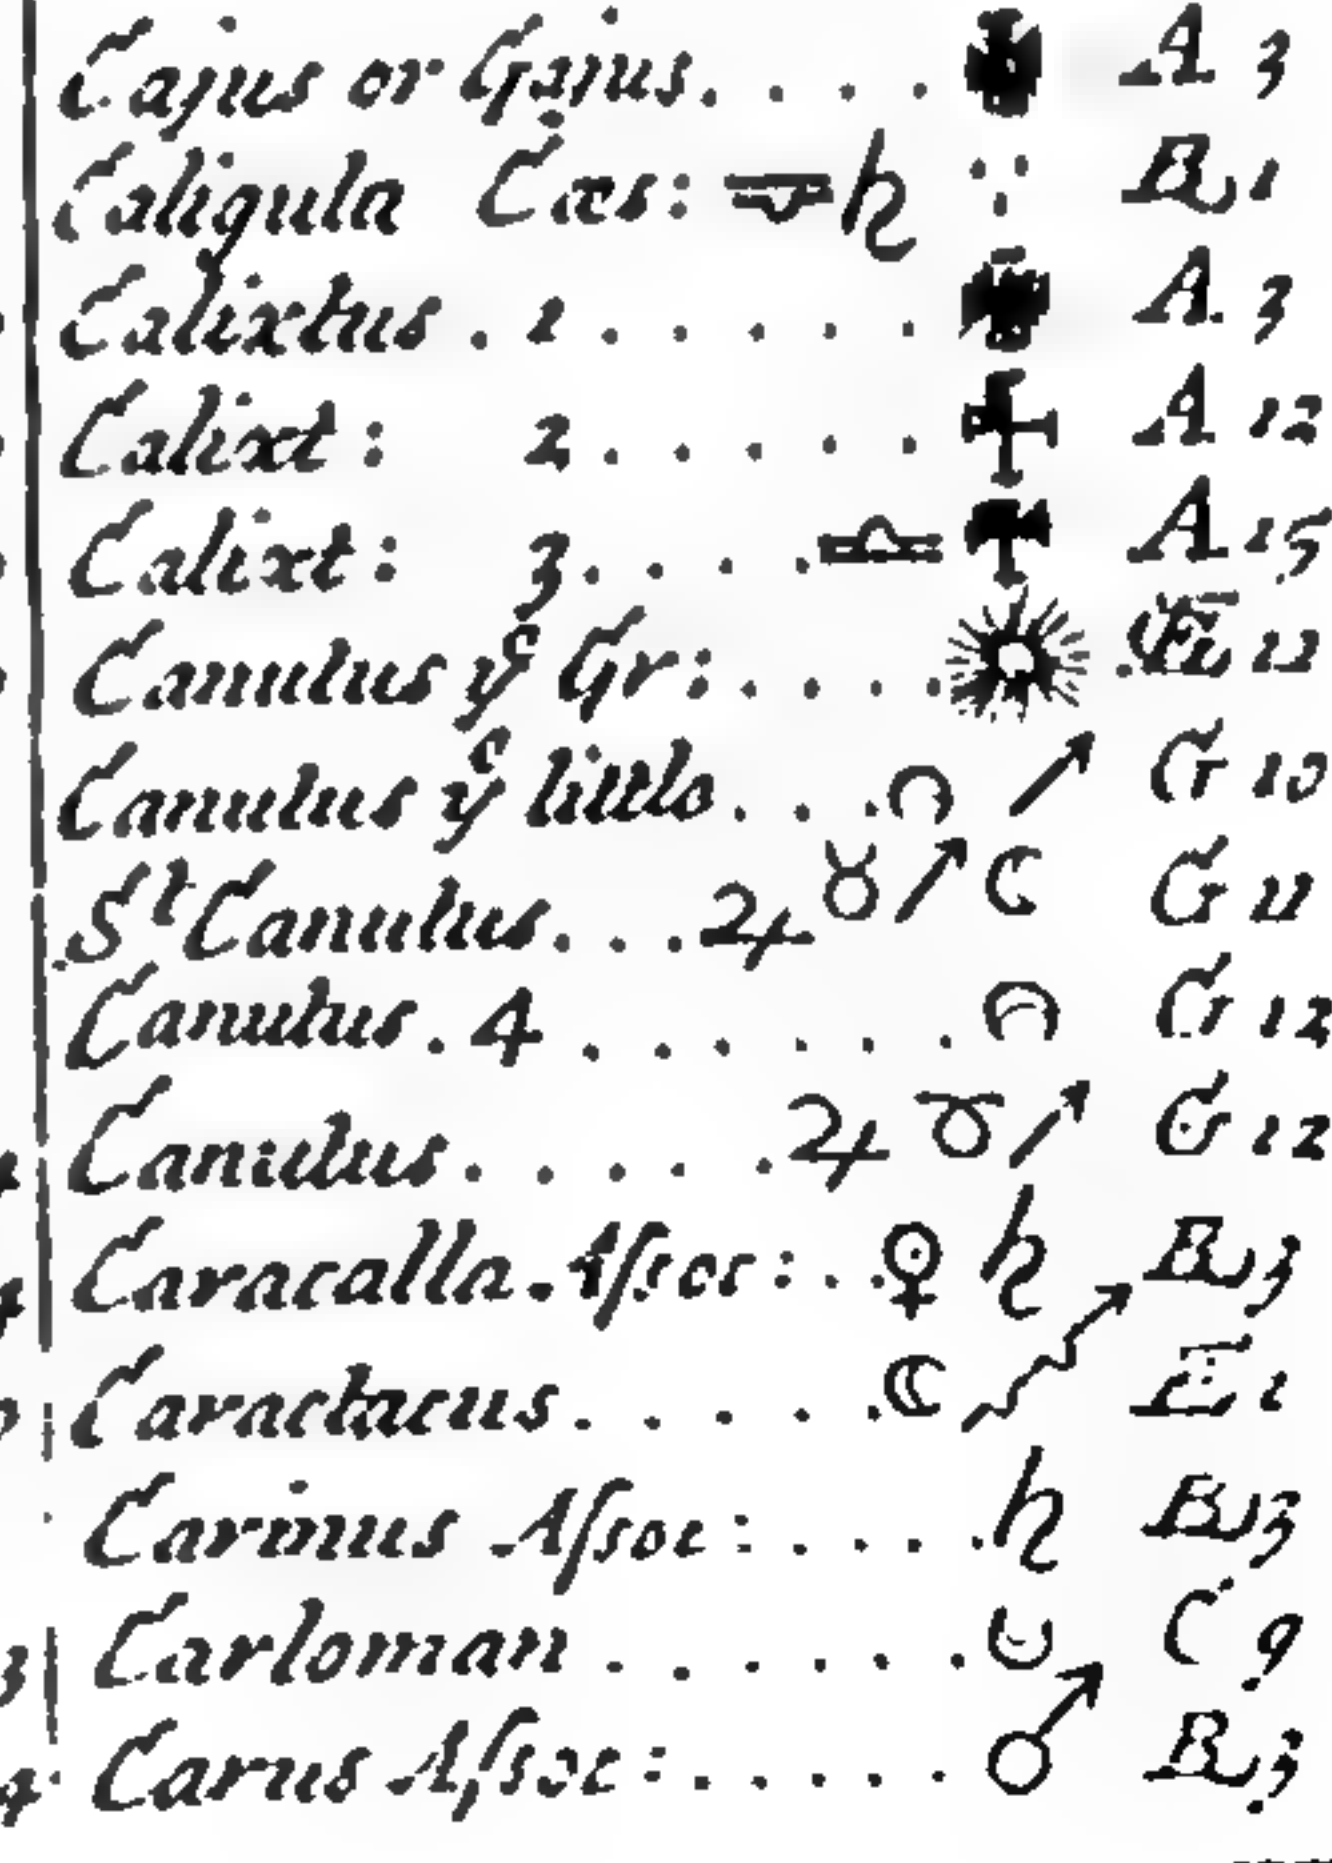 Cajus or Gajus. . . . A 3
Caligula Cæs: ♎ ♄ ∵ B 1
Calixtus . 1 . . . . . . A. 3
Calixt: 2 . . . . . ✠ A 12
Calixt: 3. . . . ♎ A 15
Canutus yͤ Gr: . . . . 11
Canutus yͤ little . . . G 10
Sᵗ Canutus. . . . ♃ ♉ ☾ G 11
Canutus . 4 . . . . . . G 12
Canutus. . . . . ♃ G 12
Caracalla. Assoc: . . ♀ ♄ B 3
Caractacus. . . . . ☾ E 1
Carinus Assoc: . . . . ♄ B 3
Carloman . . . . . . C 9
Carus Assoc: . . . . . ♂ B 3